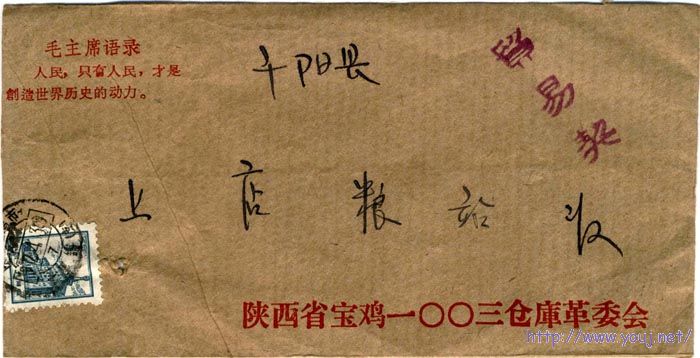 毛主席语录
人民，只有人民，才是
創造世界历史的动力。
千阳县
贸易类
上店粮站收
陕西省宝鸡一〇〇三仓庫革委会
http://www.youj.net/